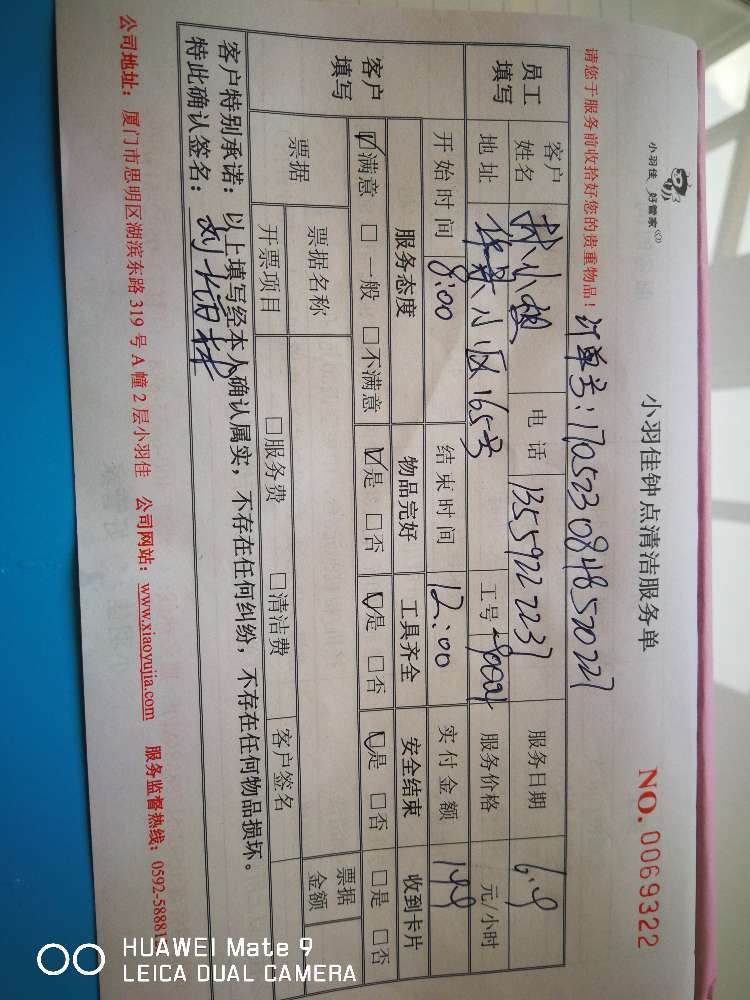 小羽佳 好管家
小羽佳钟点清洁服务单
NO. 0069322
请您于服务前收拾好您的贵重物品！
订单号：170523084852022
员工填写
客户姓名 林小姐 电话 13559222237 服务日期 6.9
地址 华景小区165号 工号 服务价格 元/小时
客户填写
开始时间 8:00 结束时间 12:00 实付金额 149
服务态度 物品完好 工具齐全 安全结束 收到卡片
☑满意 □一般 □不满意 ☑是 □否 ☑是 □否 ☑是 □否 □是 □否
票据 票据名称 票据金额
开票项目 □服务费 □清洁费 客户签名
客户特别承诺：以上填写经本人确认属实，不存在任何纠纷，不存在任何物品损坏。
特此确认签名：
公司地址：厦门市思明区湖滨东路 319 号 A 幢 2 层小羽佳 公司网站：www.xiaoyujia.com 服务监督热线：0592-58881
HUAWEI Mate 9
LEICA DUAL CAMERA